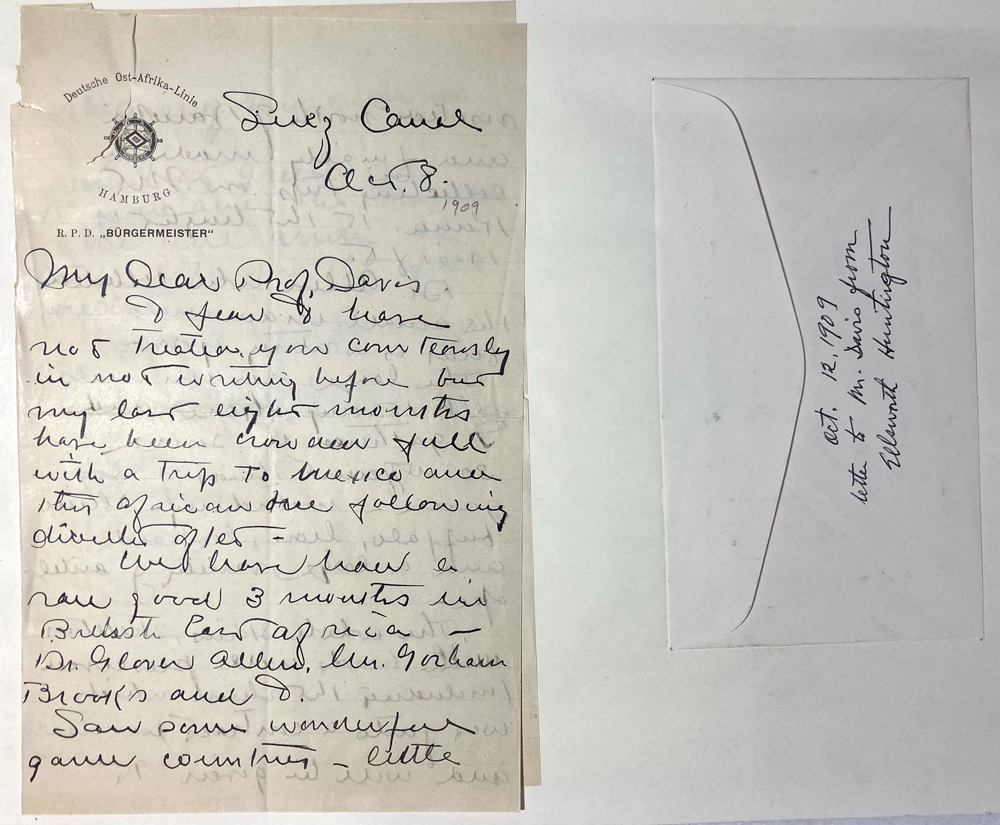 Deutsche Ost-Afrika-Linie
HAMBURG
R. P. D. „BÜRGERMEISTER“
Suez Canal
Oct. 8.
1909
My Dear Prof. Davis
I fear I have
not treated you courteously
in not writing before but
my last eight months
have been crowded full
with a trip to Mexico and
this African one following
directly after –
We have had a
rare good 3 months in
British East Africa –
Dr. Glover Allen, Mr. Gorham
Brooks and I.
Saw some wonderful
game country – little
oct. 12, 1909
letter to Mr. Davis from
Ellsworth Huntington